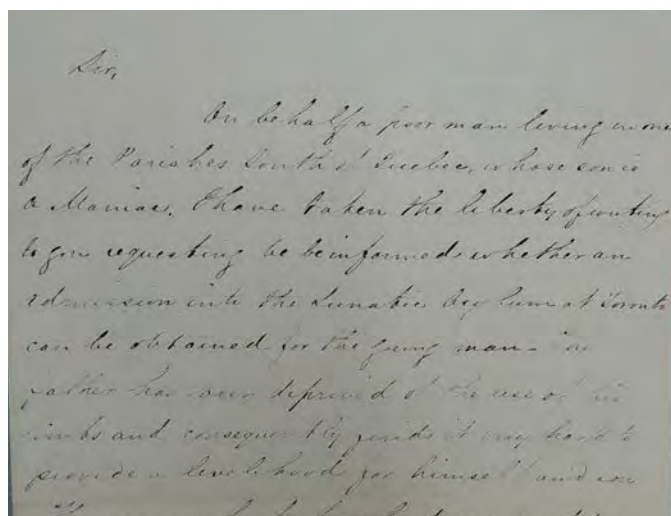 Sir,
On behalf a poor man living in one
of the Parishes South of Quebec, whose son is
a Maniac, I have taken the liberty of writing
to you requesting to be informed whether an
admission into the Lunatic Asylum at Toronto
can be obtained for the young man. The
father has been deprived of the use of his
limbs and consequently finds it very hard to
provide a livelihood for himself and son